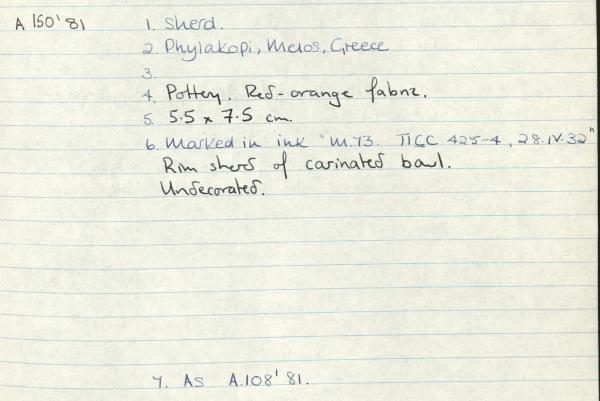 A 150'81
1. Sherd.
2. Phylakopi, Melos, Greece
3.
4. Pottery. Red-orange fabric.
5. 5.5 x 7.5 cm.
6. Marked in ink "M.73. TIGC 425-4, 28.IV.32"
Rim sherd of carinated bowl.
Undecorated.
7. As A.108'81.